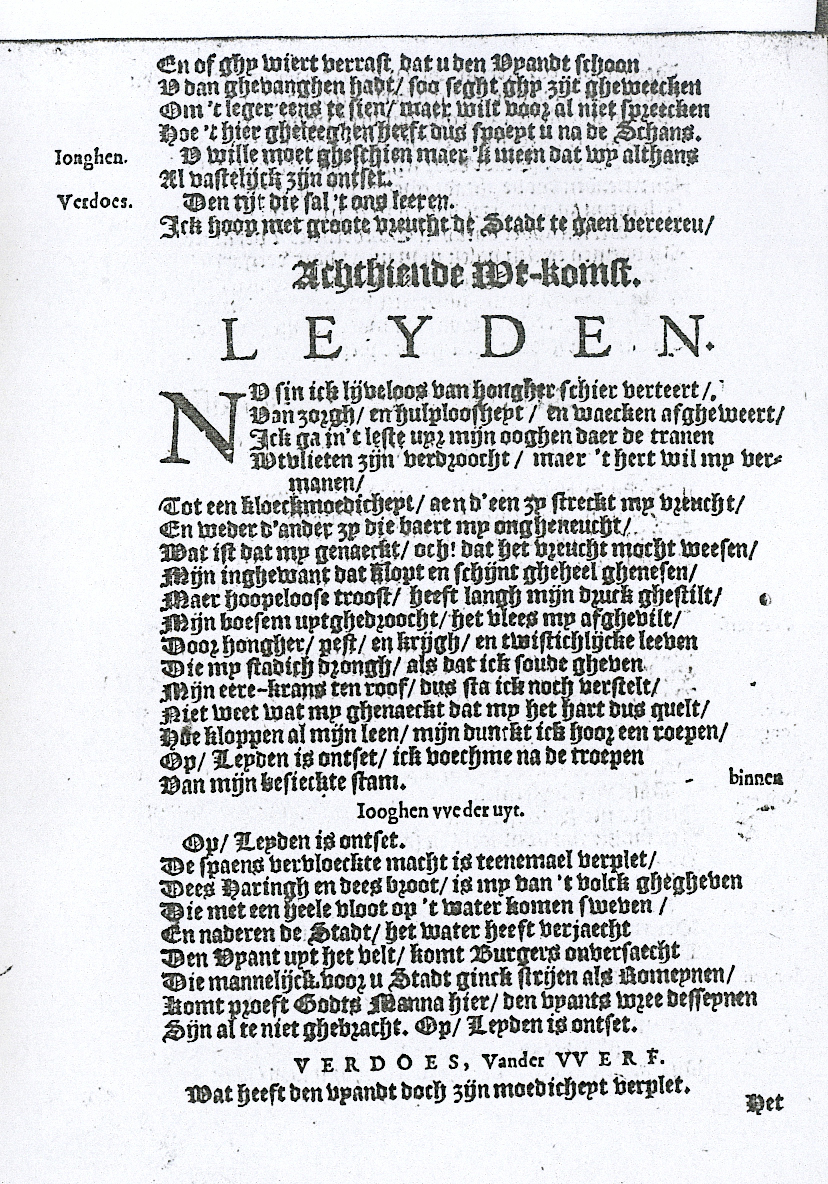 En of ghy wiert verrast dat u den Vyandt schoon
V dan ghevanghen hadt/ soo seght ghy zijt gheweecken
Om 't leger eens te sien/ maer wilt voor al niet spreecken
Hoe 't hier gheleeghen heeft dus spoept u na de Schans.
Ionghen. V wille moet gheschien maer 'k meen dat wy althans
Al vastelijck zijn ontset.
Verdoes. Den tijt die sal 't ons leeren.
Ick hoop met groote vreucht de Stadt te gaen vereeren/
Achthiende Wt-komst.
LEYDEN.
NV sin ick lijveloos van hongher schier verteert/
Van zorgh/ en hulploosheyt/ en waecken afgheweert/
Ick ga in 't leste uyt mijn ooghen daer de tranen
Wtvlieten zijn verdroocht/ maer 't hert wil my ver-
manen/
Tot een kloeckmoedicheyt/ aen d'een zy streckt my vreucht/
En weder d'ander zy die baert my ongheneucht/
Wat ist dat my genaeckt/ och! dat het vreucht mocht weesen/
Mijn inghewant dat klopt en schijnt gheheel ghenesen/
Maer hoopeloose troost/ heeft langh mijn druck ghestilt/
Mijn boesem uytghedroocht/ het vlees my afghevilt/
Door hongher/ pest/ en krijgh/ en twistichlijcke leeven
Die my stadich drongh/ als dat ick soude gheven
Mijn eere-krans ten roof/ dus sta ick noch verstelt/
Niet weet wat my ghenaeckt dat my het hart dus quelt/
Hoe kloppen al mijn leen/ mijn dunckt ick hoor een roepen/
Op/ Leyden is ontset/ ick voechme na de troepen
Van mijn besieckte stam. - binnen
Iooghen vveder uyt.
Op/ Leyden is ontset.
De spaens vervloeckte macht is teenemael verplet/
Dees Haringh en dees broot/ is my van 't volck ghegheven
Die met een heele vloot op 't water komen sweven /
En naderen de Stadt/ het water heeft verjaecht
Den Vyant uyt het velt/ komt Burgers onversaecht
Die mannelijck voor u Stadt ginck strijen als Romeynen/
Komt proeft Godts Manna hier/ den vyants wree desseynen
Sijn al te niet ghebracht. Op/ Leyden is ontset.
VERDOES, Vander VVERF.
Wat heeft den vyandt doch zijn moedicheyt verplet.
Het